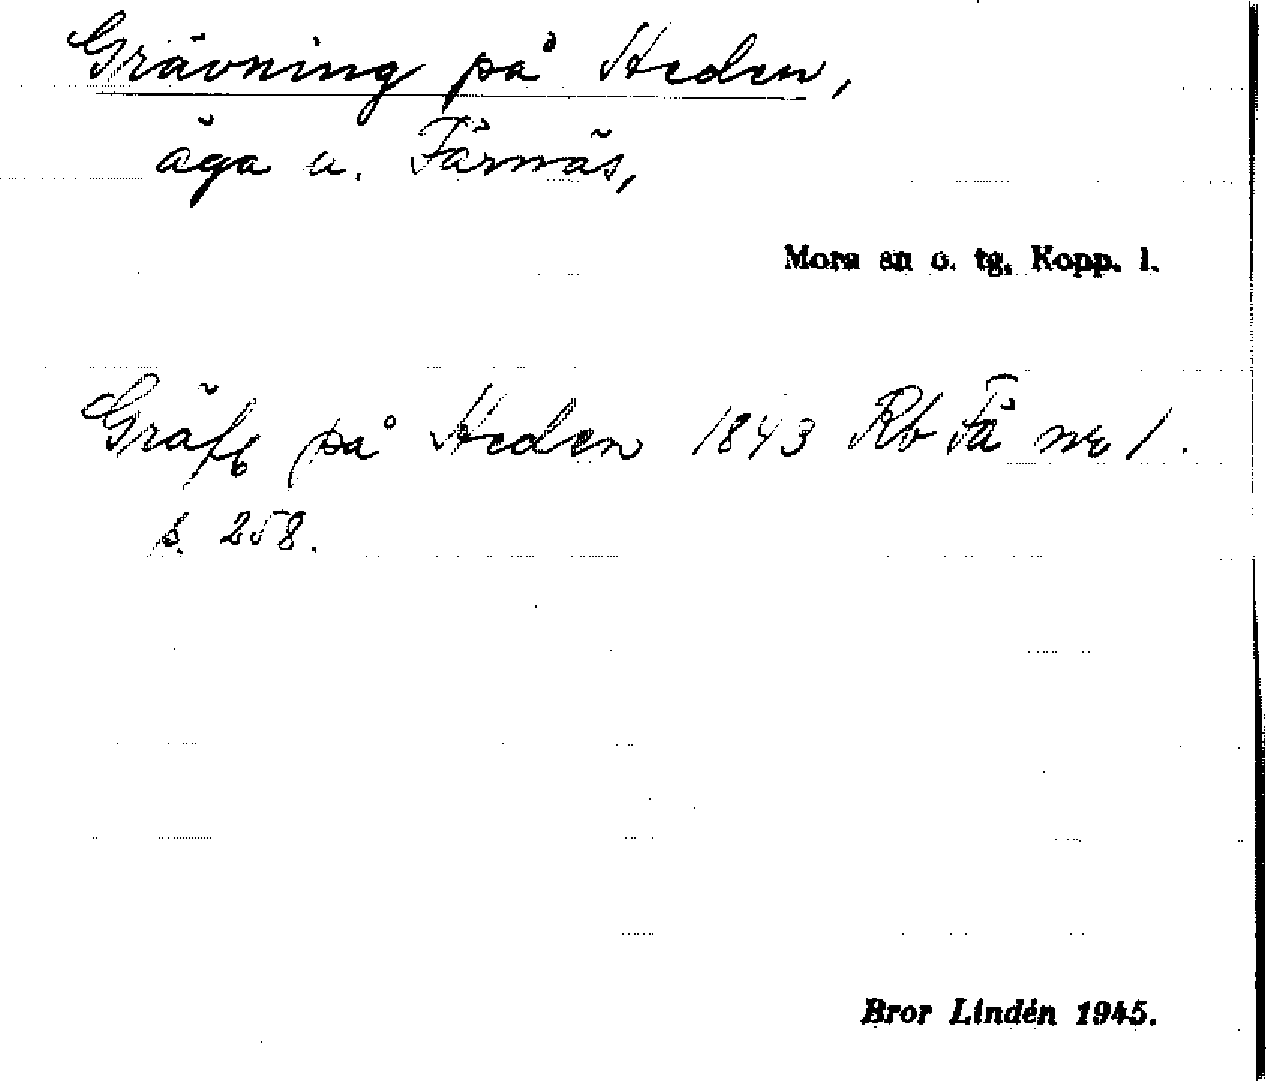 Grävning på Heden,
äga u. Färnäs,
Mora sn o. tg. Kopp. l.
Gräfg på Heden 1843 Rb Fä nr 1.
s. 258.
Bror Lindén 1945.